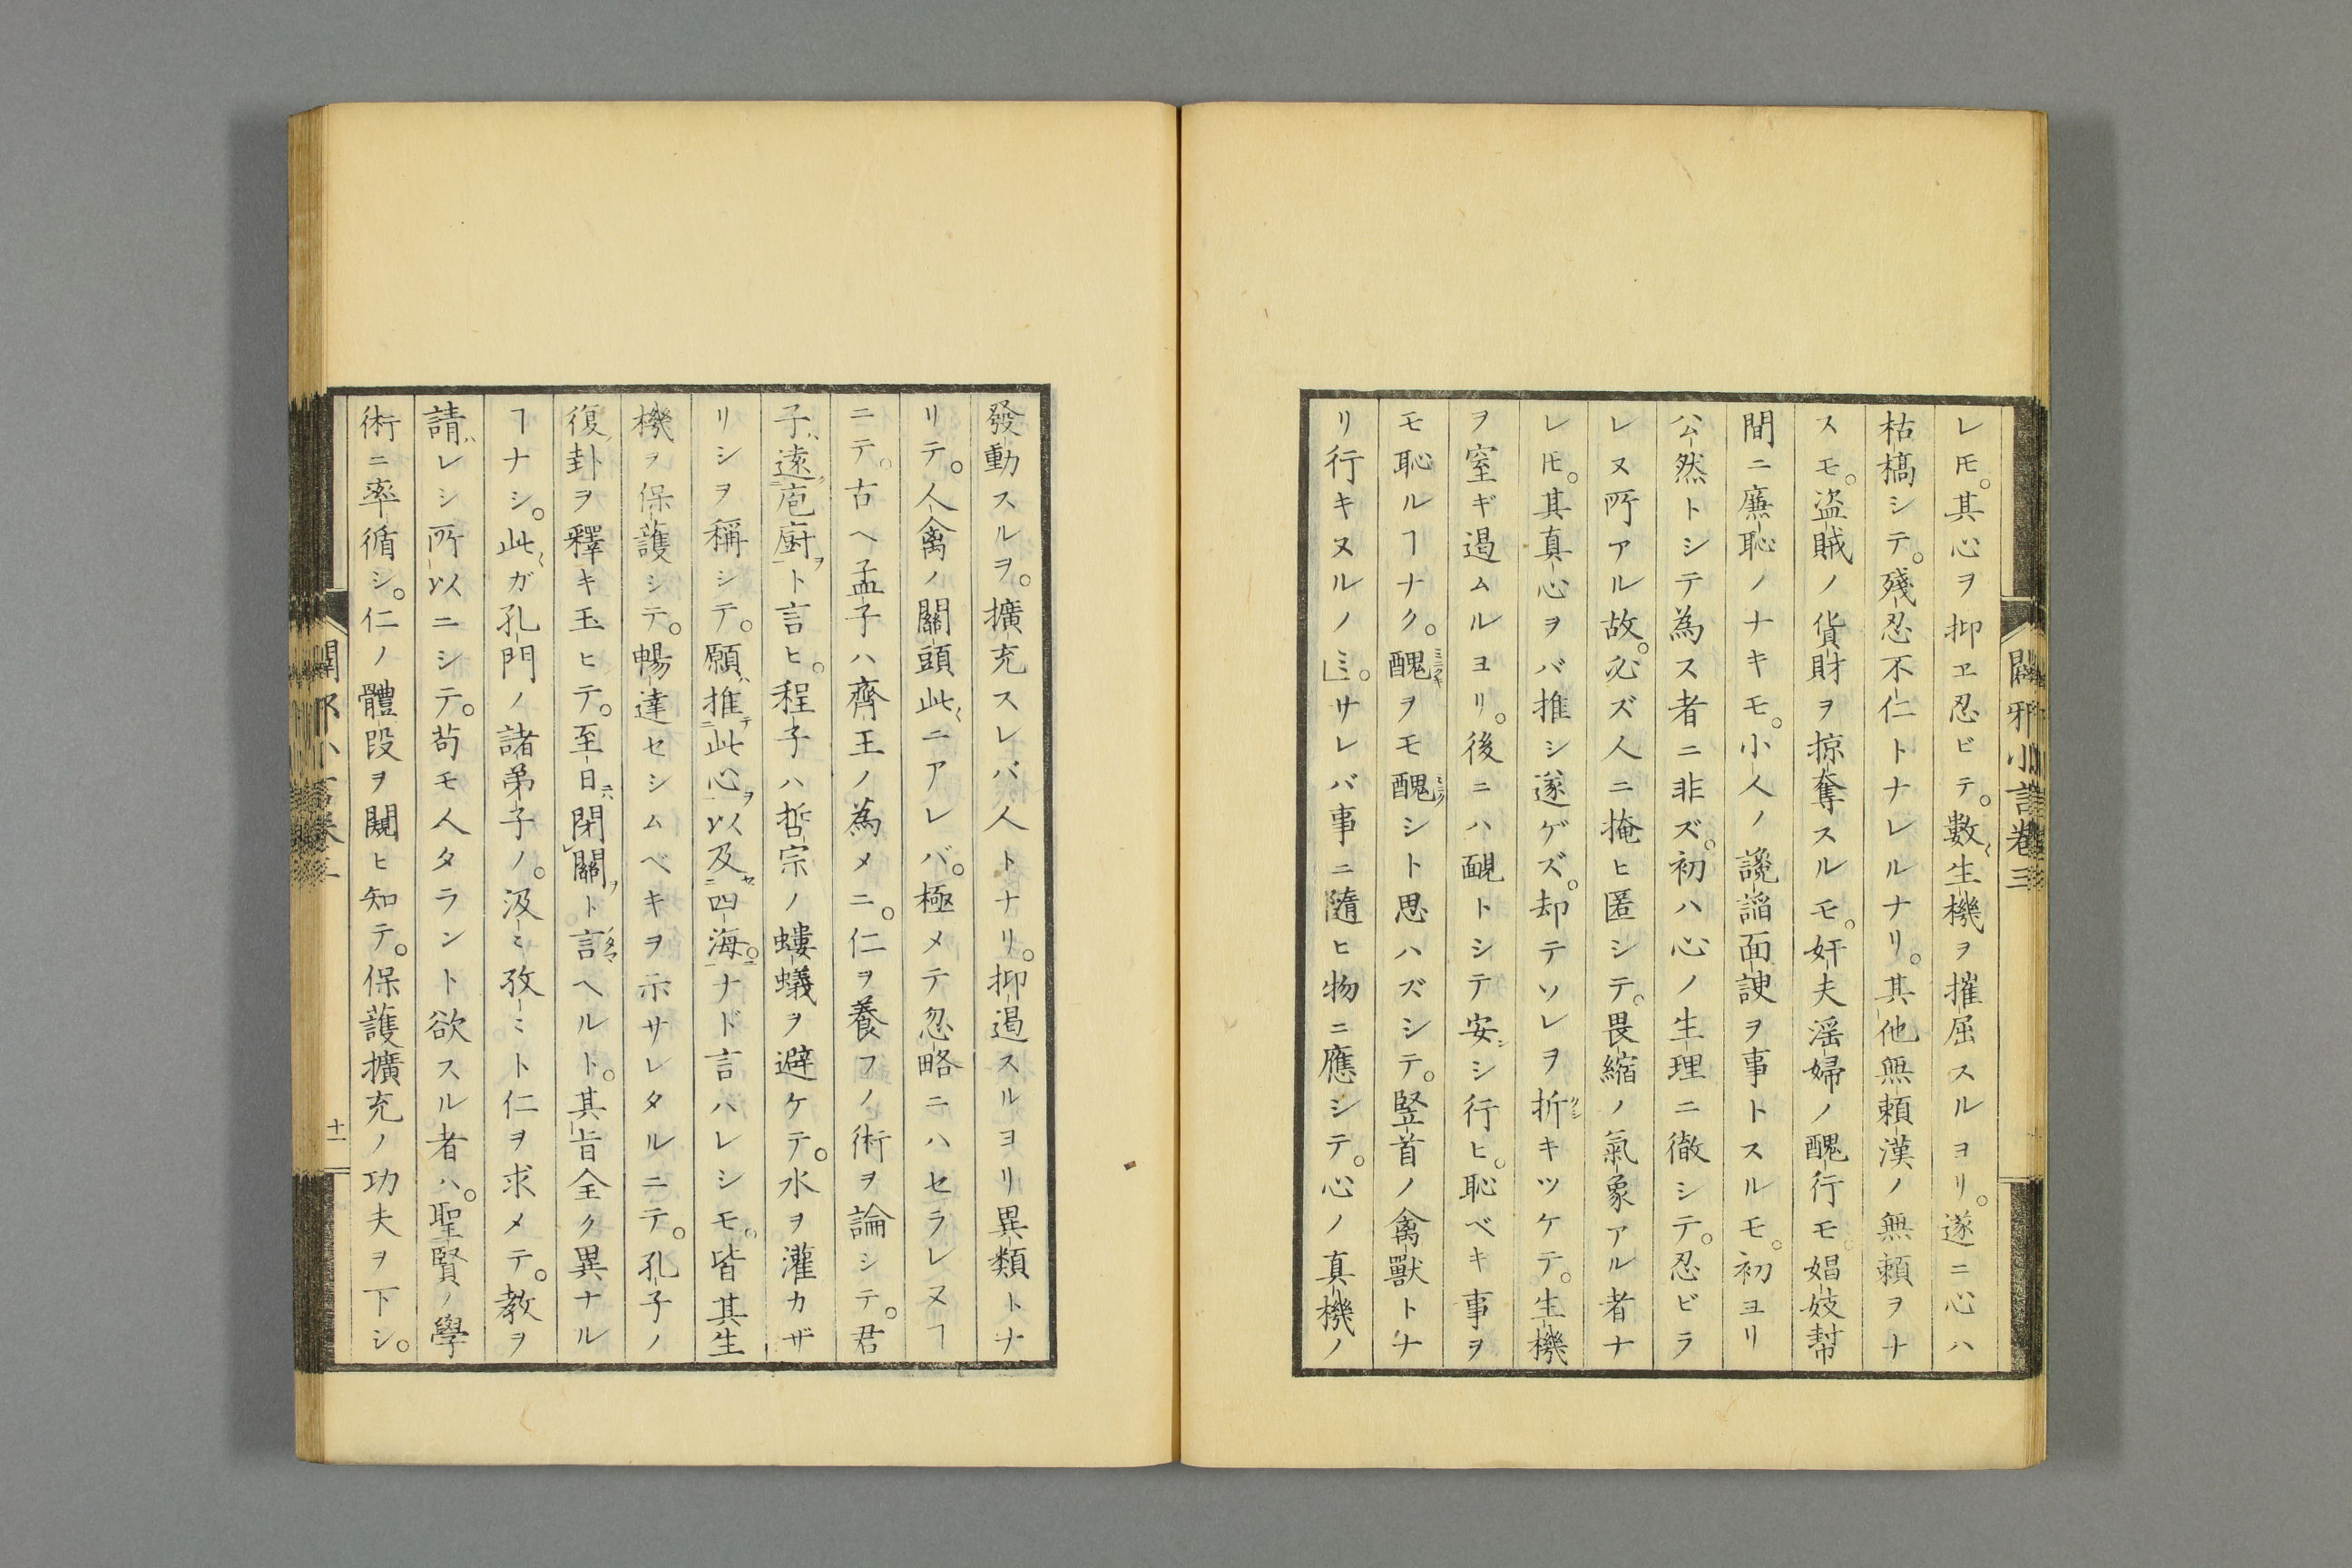 闢邪小言卷三
レ𪜈。其心ヲ抑ヱ忍ビテ。數〻生機ヲ摧屈スルヨリ。遂ニ心ハ
枯槁シテ。殘忍不仁トナレルナリ。其他無頼漢ノ無頼ヲナ
スモ。盗賊ノ貨財ヲ掠奪スルモ。奸夫淫婦ノ醜行モ。娼妓幇
間ニ廉恥ノナキモ。小人ノ讒謟面諛ヲ事トスルモ。初ヨリ
公然トシテ為ス者ニ非ズ。初ハ心ノ生理ニ徹シテ。忍ビラ
レヌ所アル故。必ズ人ニ掩ヒ匿シテ。畏縮ノ氣象アル者ナ
レ𪜈。其真心ヲバ推シ遂ゲズ。却テソレヲ折キツケテ。生機
ヲ窒ギ遏ムルヨリ。後ニハ靦トシテ安シ行ヒ。恥ベキ事ヲ
モ恥ルヿナク。醜ヲモ醜シト思ハズシテ。竪首ノ禽獸トナ
リ行キヌルノミ。サレバ事ニ隨ヒ物ニ應シテ。心ノ真機ノ
發動スルヲ。擴充スレバ人トナリ。抑遏スルヨリ異類トナ
リテ。人禽ノ關頭此ニアレバ。極メテ忽略ニハセラレヌヿ
ニテ。古ヘ孟子ハ齊王ノ為メニ。仁ヲ養フノ術ヲ論シテ。君
子ハ遠庖厨ヲト言ヒ。程子ハ哲宗ノ螻蟻ヲ避ケテ。水ヲ灌カザ
リシヲ稱シテ。願ハ推テ此心ヲ以及セ四海ニナド言ハレシモ。皆其生
機ヲ保護シテ。暢達セシムベキヲ示サレタルニテ。孔子ノ
復卦ヲ釋キ玉ヒテ。至日ニハ閉關ヲト言ヘルト。其旨全ク異ナル
ヿナシ。此ガ孔門ノ諸弟子ノ。汲〻孜〻ト仁ヲ求メテ。教ヲ
請ハレシ所以ニシテ。苟モ人タラント欲スル者ハ。聖賢ノ學
術ニ率循シ。仁ノ體段ヲ闚ヒ知テ。保護擴充ノ功夫ヲ下シ。
十一